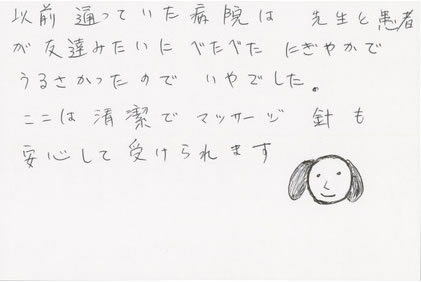 以前 通っていた病院は 先生と患者
が友達みたいに べたべた にぎやかで
うるさかったので いやでした。
ここは清潔で マッサージ 針も
安心して受けられます